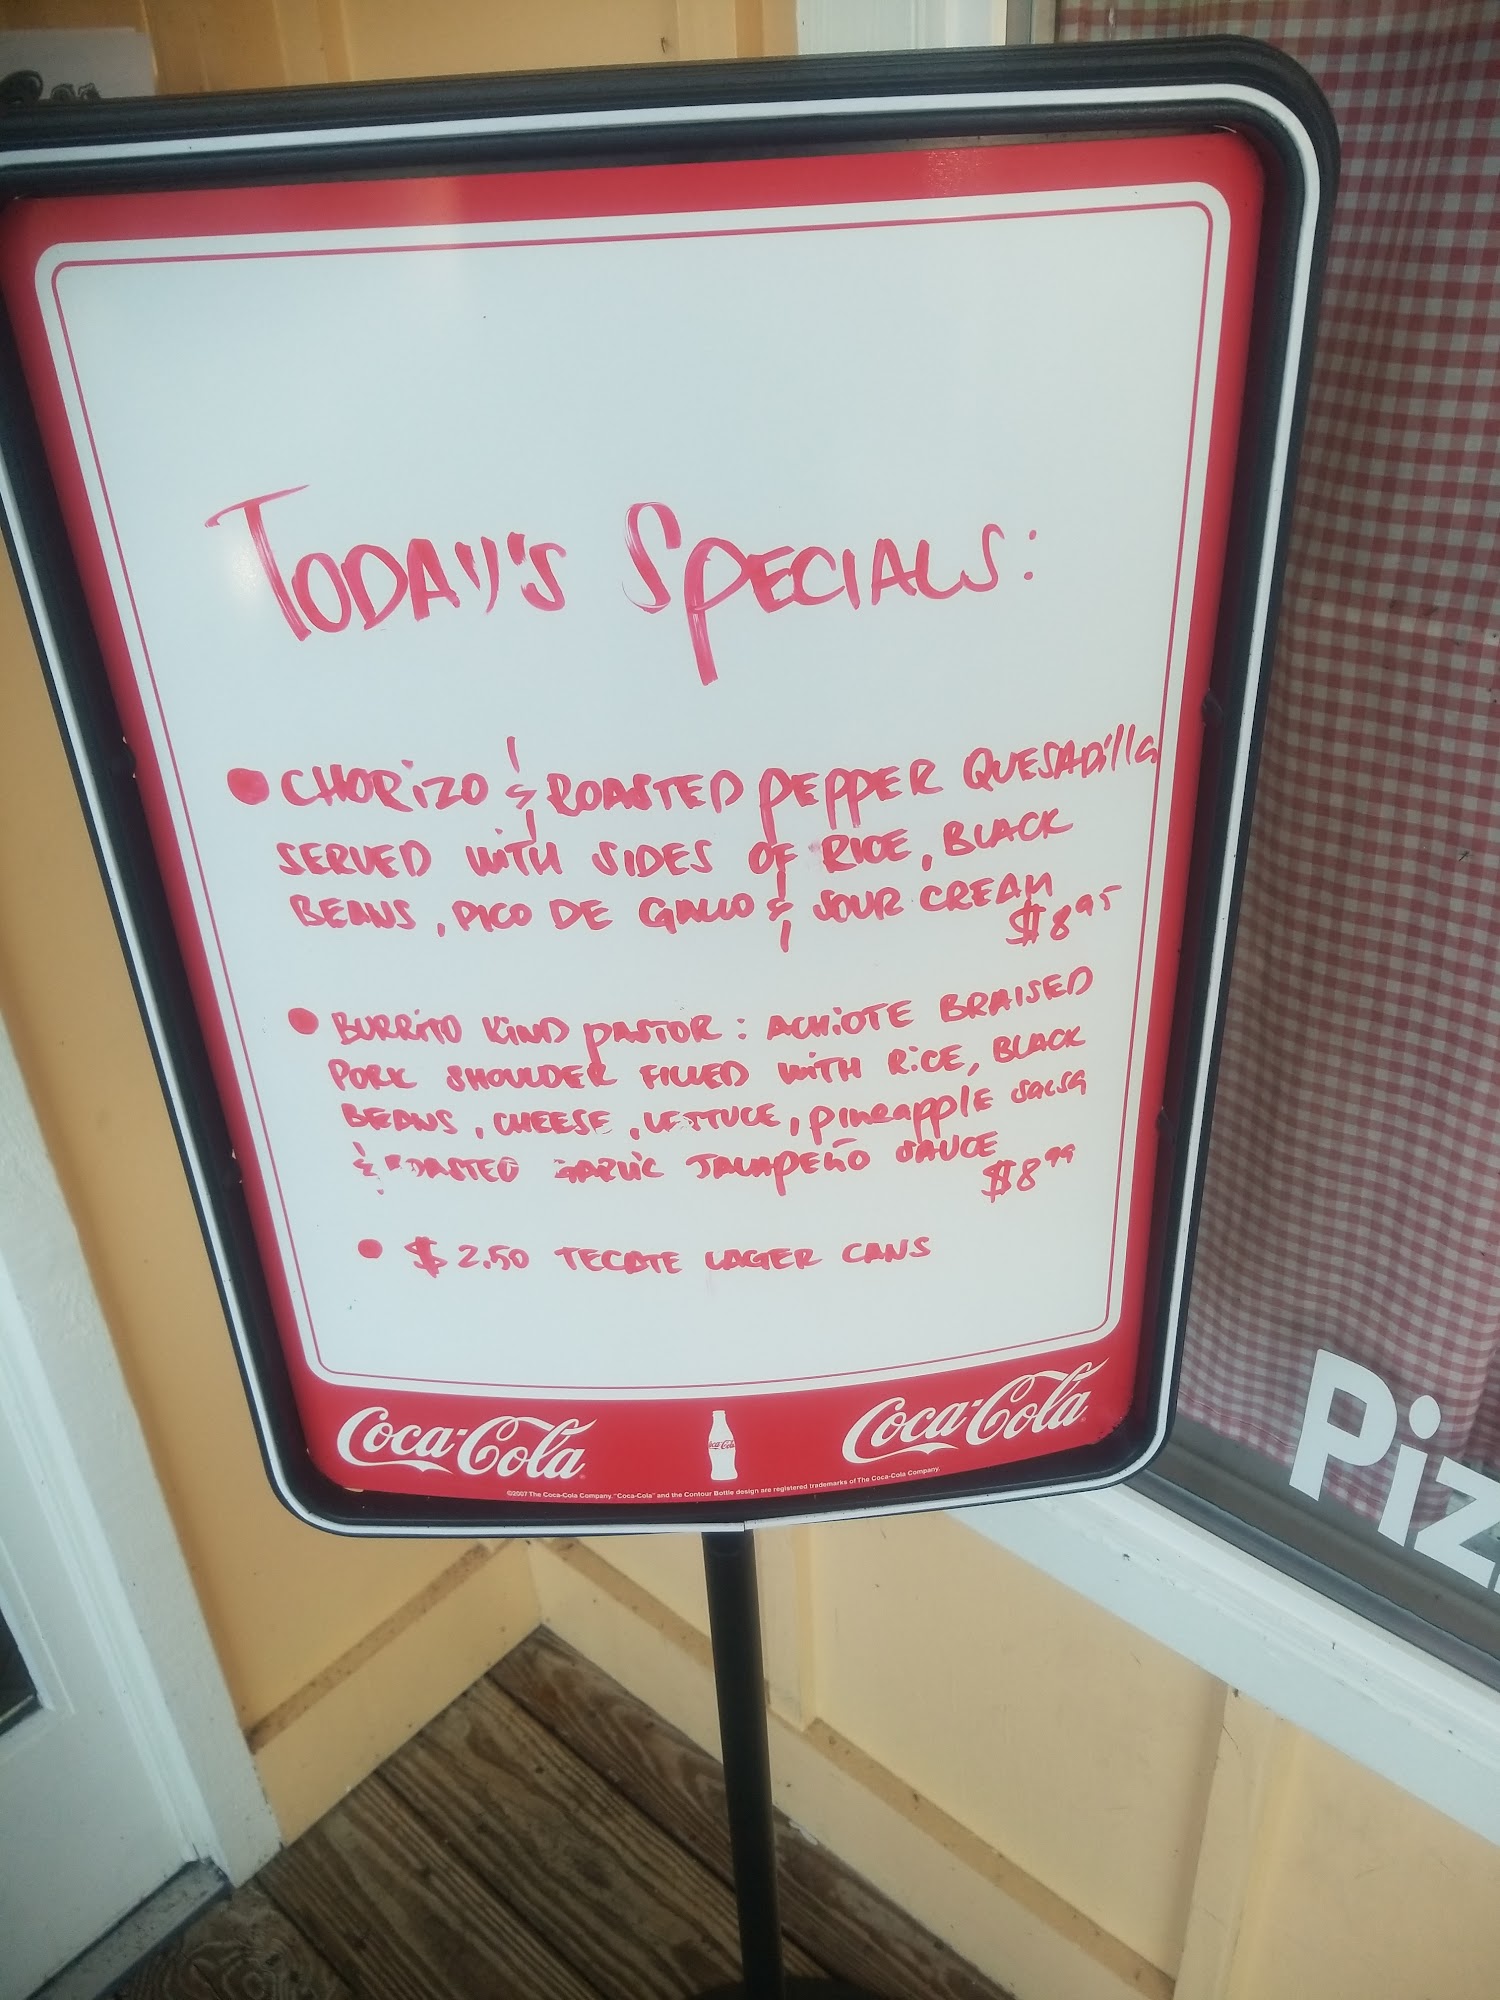 TODAY'S SPECIALS:
• CHORIZO & ROASTED PEPPER QUESADilla
SERVED WITH SIDES OF RICE, BLACK
BEANS, PICO DE GALLO & SOUR CREAM
$8.95
• BURRITO KIND PASTOR: ACHIOTE BRAISED
PORK SHOULDER FILLED WITH RICE, BLACK
BEANS, CHEESE, LETTUCE, pineapple SALSA
& ROASTED GARLIC JALAPEÑO SAUCE
$8.99
• $2.50 TECATE LAGER CANS
Coca-Cola Coca-Cola Coca-Cola
©2007 The Coca-Cola Company. "Coca-Cola" and the Contour Bottle design are registered trademarks of The Coca-Cola Company.
Piz